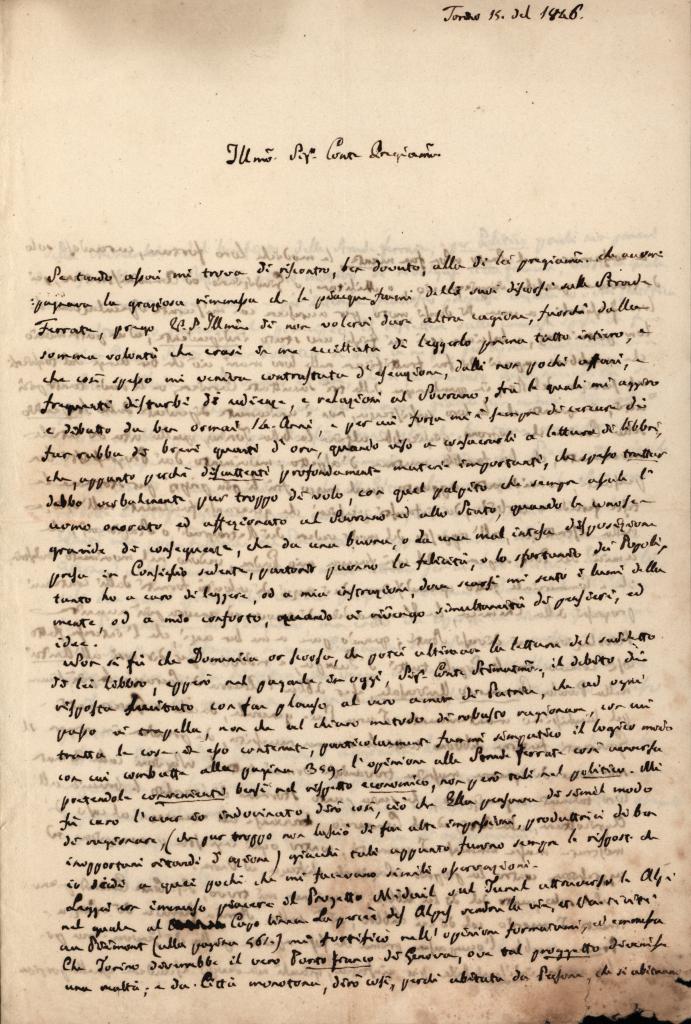 Torino 15. del 1846.
Illmo. Sigr. Conte Pregiamo.
Se tardo assai mi trova di riscontro, ben dovuto, alla di lei pregiama. che accom-
:pagnava la graziosa rimessa che le piacque farmi delli suoi discorsi sulle Strade
Ferrate, prego V. S. Illma. di non volervi dare altra cagione, fuorchè dalla
somma volontà che erasi in me eccittata di leggerlo prima tutto intiero, e
che così spesso mi veniva contrastata d'esecuzione, dalli non pochi affari, e
frequenti disturbi di udienze, e relazioni al Sovrano, frà le quali mi aggiro
e dibatto da ben ormai 14. Anni, e per cui forza mi è sempre di cercare di
far rubba de brevi quarti d'ora, quando viso a consacrarli a lettura di libbri,
che, appunto perchè discuttenti profondamente materie importanti, che spesso trattar
debbo verbalmente pur troppo di volo, con quel palpito che sempre assale l'
uomo onorato ed affezionato al Sovrano ed allo Stato, quando le conosce
gravide di conseguenze, che da una buona, o da una mal intesa disposizione
presa in Consiglio sedente, partorir puonno la felicità, o lo sfortunio dei Popoli,
tanto ho a caro di leggere, od a mia instruzione, dove scarsi mi sento i lumi della
mente, od a mio conforto, quando vi rinvengo simultaneità di pensieri, ed
idee.
Non si fù che Domenica or scorsa, che potei ultimare la lettura del suddetto
di lei libbro, epperò nel pagarle in oggi, Sigr. Conte Stimatmo., il debito di
risposta con far plauso al vero amor di Patria, che ad ogni
passo vi trapella, non che al chiaro metodo di robusto ragionare, con cui
tratta le cose in esso contenute, particolarmente fummi simpatico il logico modo
con cui combatte alla pagina 359. l'opinione alle Strade ferrate così avversa
pretendole convenienti bensì nel rispetto economico, non però tali nel politico. Mi
fù caro l'aver io indovinato, dirò così, ciò che Ella pensava di simil modo
di ragionare, (che pur troppo non lasciò di far alte impressioni, produttrici di ben
inopportuni ritardi d'azione) giacchè tali appunto furono sempre le risposte che
io diedi a quei pochi che mi facevano simili osservazioni.
Lessi con immenso piacere il Progetto Midail sul Tunel attraverso le Alpi
nel quale al Capo linea La percée des Alpes rendra la vie, et l'activité
au Piémont (alla pagina 361.) mi fortificò nell'opinione formatami, ed emessa
Che Torino diverrebbe il vero Porto franco di Genova, ove tal progetto divenisse
una realtà; e da Città monotona, dirò così, perchè abitata da Persone, che si abituano